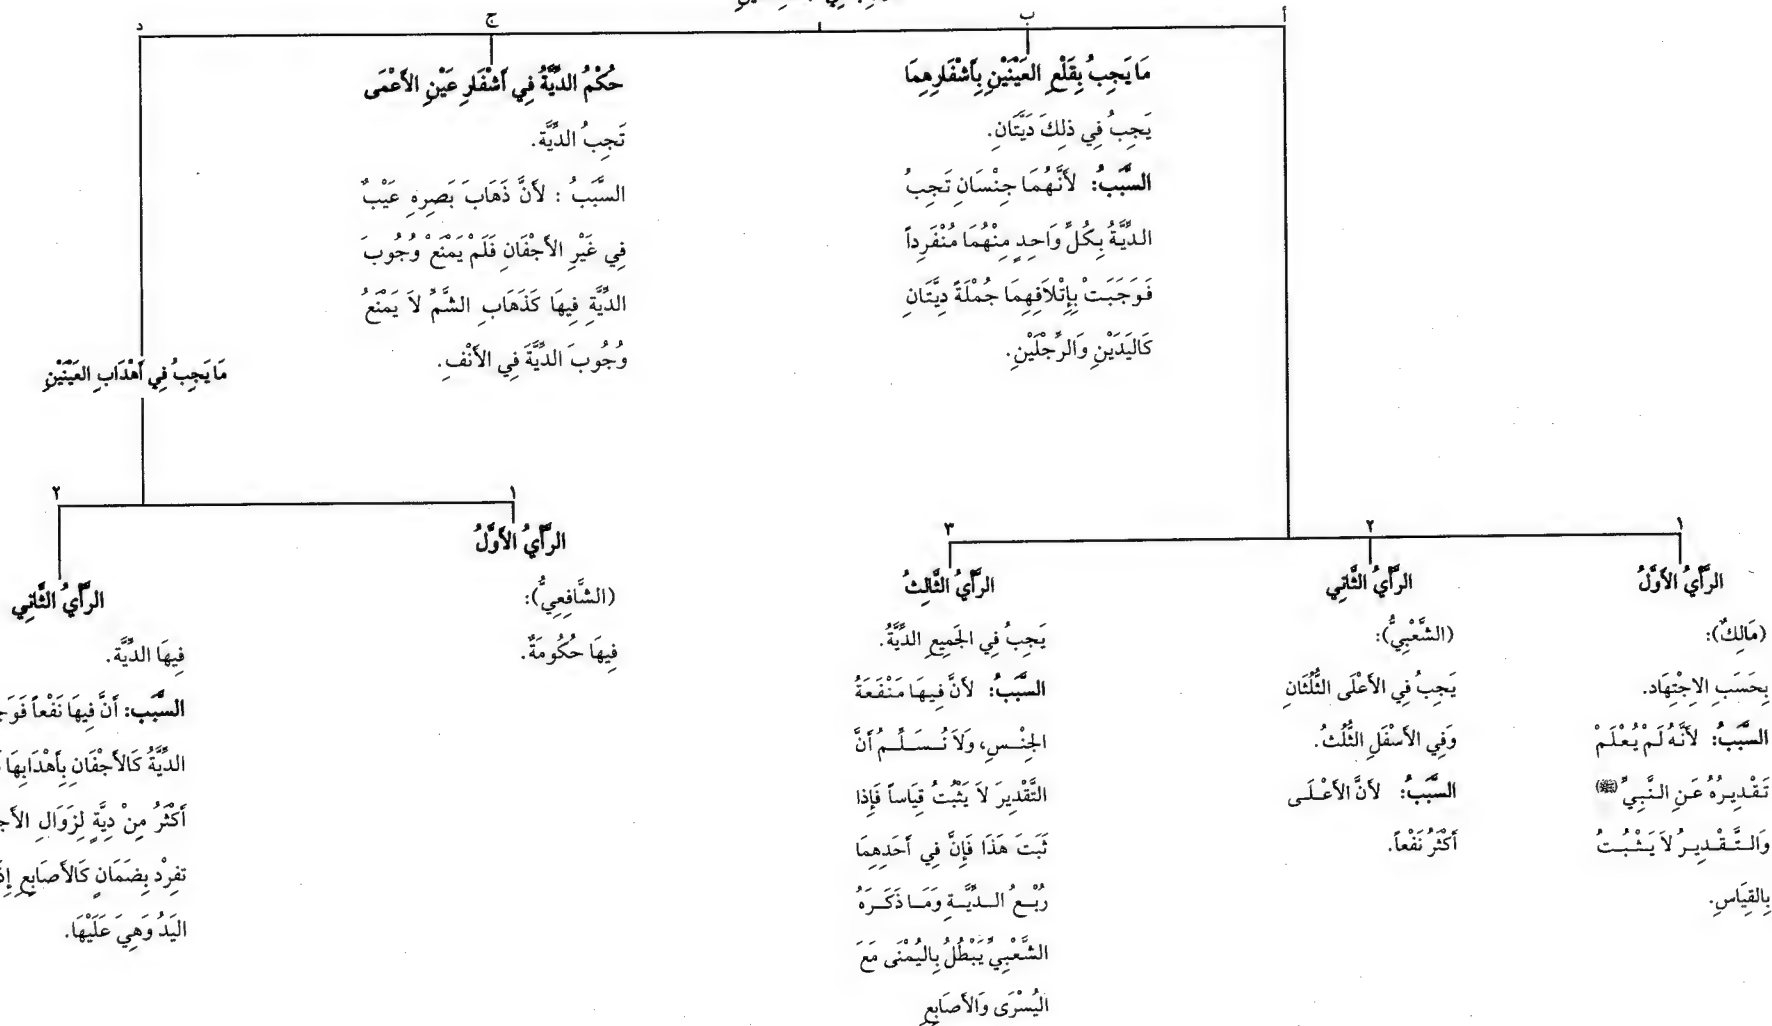 أ
ب
مَا يَجِبُ بِقَلْعِ العَيْنَيْنِ بِأَشْفَارِهِمَا
يَجِبُ فِي ذلِكَ دِيَّتَانِ.
السَّبَبُ: لأَنَّهُمَا جِنْسَانِ تَجِبُ
الدِّيَّةُ بِكُلِّ وَاحِدٍ مِنْهُمَا مُنْفَرِداً
فَوَجَبَتْ بِإِتْلاَفِهِمَا جُمْلَةً دِيَّتَانِ
كَاليَدَيْنِ وَالرِّجْلَيْنِ.
ج
حُكْمُ الدِّيَّةُ فِي أَشْفَارِ عَيْنِ الأَعْمَى
تَجِبُ الدِّيَّة.
السَّبَبُ : لأَنَّ ذَهَابَ بَصَرِهِ عَيْبٌ
فِي غَيْرِ الأَجْفَانِ فَلَمْ يَمْنَعْ وُجُوبَ
الدِّيَّةِ فِيهَا كَذَهَابِ الشَّمِّ لاَ يَمْنَعُ
وُجُوبَ الدِّيَّةَ فِي الأَنْفِ.
د
مَا يَجِبُ فِي أَهْدَابِ العَيْنَيْنِ
١
الرَّأْيُ الأَوَّلُ
(مَالِكٌ):
بِحَسَبِ الاِجْتِهَاد.
السَّبَبُ: لأَنَّهُ لَمْ يُعْلَمْ
تَقْدِيرُهُ عَنِ النَّبِيِّ ﷺ
وَالتَّقْدِيرُ لاَ يَثْبُتُ
بِالقِيَاسِ.
٢
الرَّأْيُ الثَّانِي
(الشَّعْبِيُّ):
يَجِبُ فِي الأَعْلَى الثُّلُثَان
وَفِي الأَسْفَلِ الثُّلُثُ.
السَّبَبُ: لأَنَّ الأَعْلَى
أَكْثَرُ نَفْعاً.
٣
الرَّأْيُ الثَّالِثُ
يَجِبُ فِي الجَمِيعِ الدِّيَّةُ.
السَّبَبُ: لأَنَّ فِيهَا مَنْفَعَةُ
الجِنْسِ، وَلاَ نُسَلِّمُ أَنَّ
التَّقْدِيرَ لاَ يَثْبُتُ قِيَاساً فَإِذَا
ثَبَتَ هَذَا فَإِنَّ فِي أَحَدِهِمَا
رُبْعُ الدِّيَّةِ وَمَا ذَكَرَهُ
الشَّعْبِيِّ يَبْطُلُ بِاليُمْنَى مَعَ
اليُسْرَى وَالأَصَابِعِ
١
الرَّأْيُ الأَوَّلُ
(الشَّافِعِيُّ):
فِيهَا حُكُومَةٌ.
٢
الرَّأْيُ الثَّانِي
فِيهَا الدِّيَّة.
السَّبَب: أَنَّ فِيهَا نَفْعاً
الدِّيَّةُ كَالأَجْفَانِ بِأَهْدَابِهَا
أَكْثَرُ مِنْ دِيَّةٍ لِزَوَالِ
تفرِدْ بِضَمَانٍ كَالأَصَابِعِ
اليَدُ وَهِيَ عَلَيْهَا.